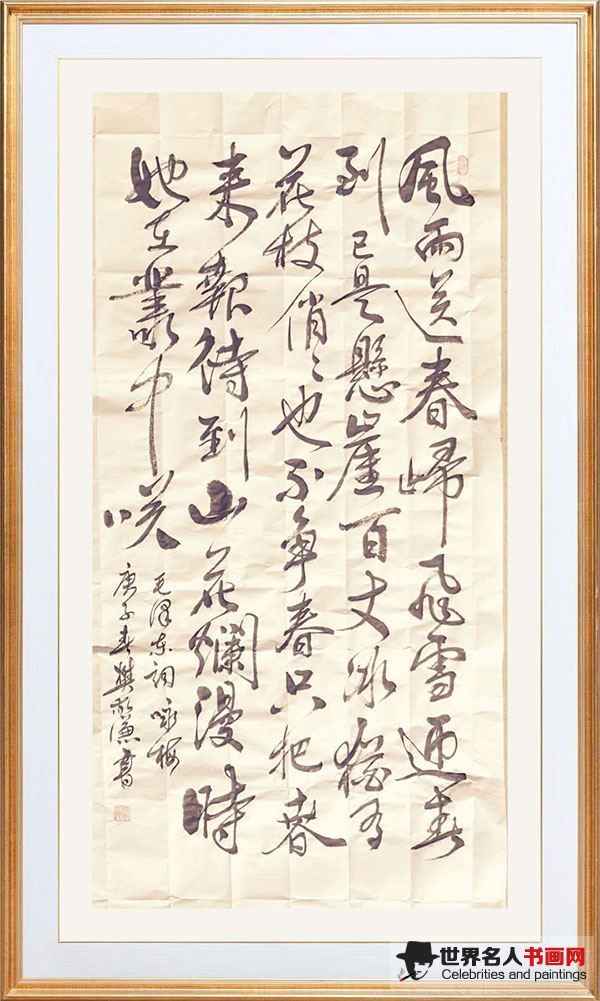 風雨送春歸飛雪迎春
到已是懸崖百丈冰猶有
花枝俏〻也不爭春只把春
来報待到山花爛漫時
她在叢中咲
毛澤东詞咏梅
庚子春樊書
世界名人书画网
Celebrities and paintings